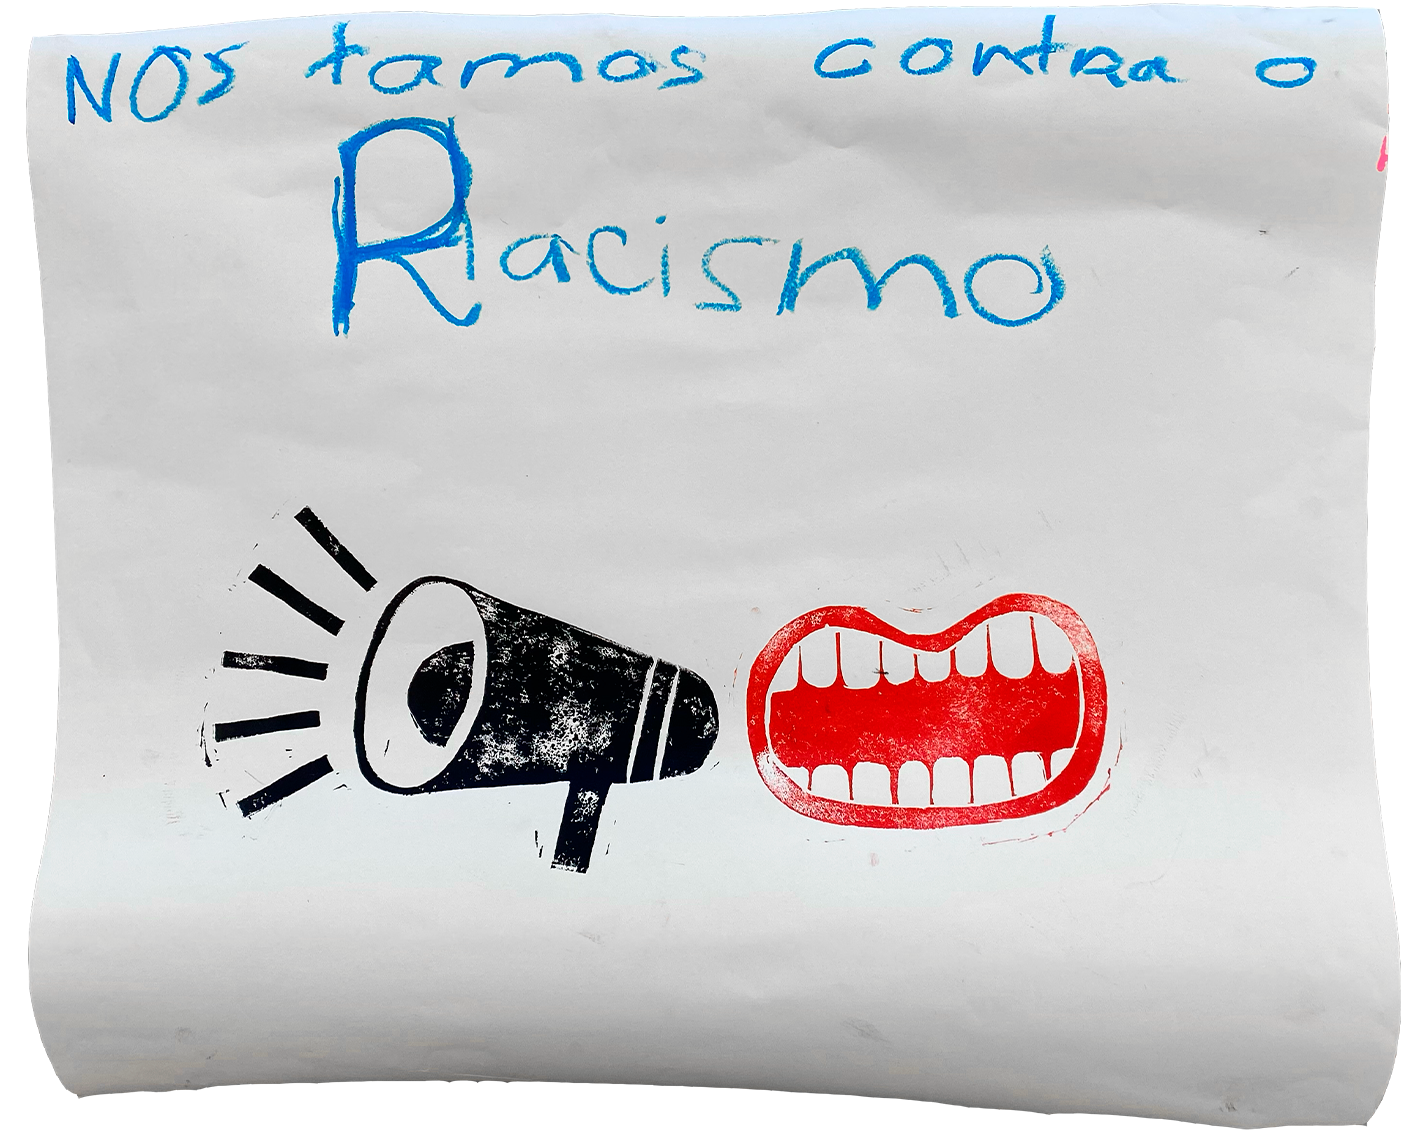 NOs tamos contra o
Racismo